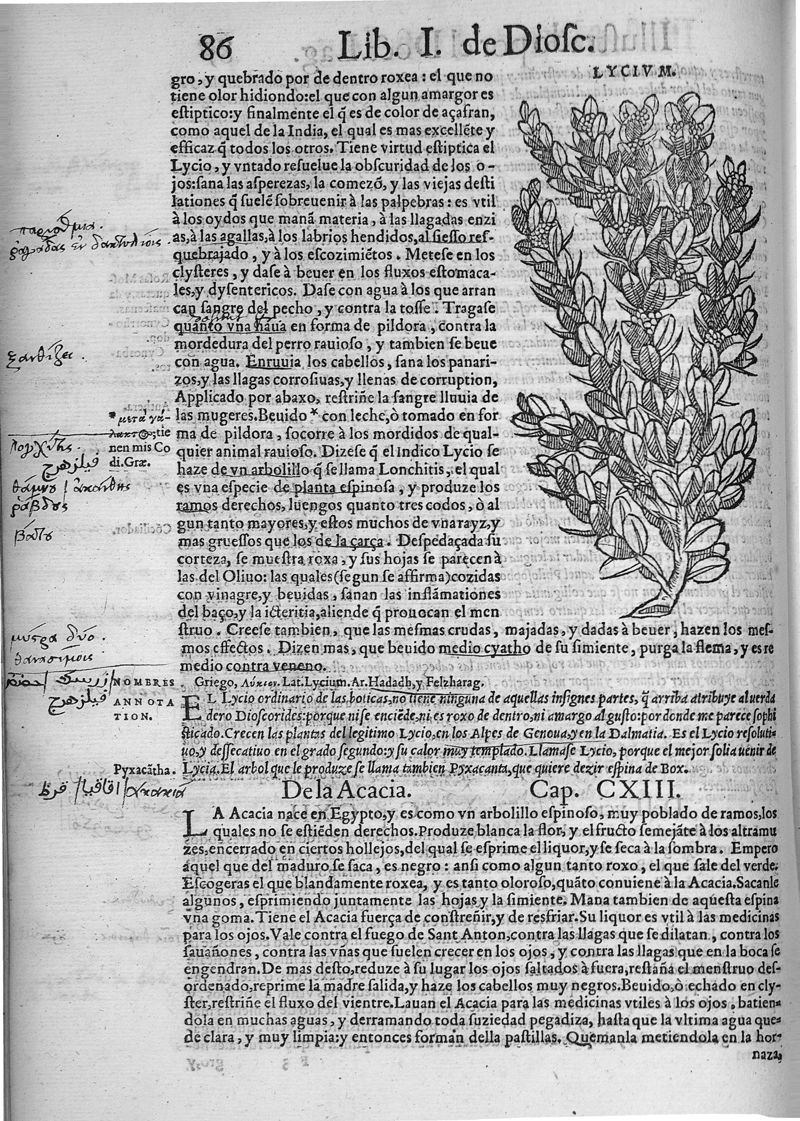 86 Lib. I. de Diosc.
LYCIVM.
gro, y quebrado por de dentro roxea: el que no
tiene olor hidiondo: el que con algun amargor es
estiptico: y finalmente el q̃ es de color de açafran,
como aquel de la India, el qual es mas excellẽte y
efficaz q̃ todos los otros. Tiene virtud estiptica el
Lycio, y vntado resuelue la obscuridad de los o-
jos: sana las asperezas, la comezõ, y las viejas desti
lationes q̃ suelẽ sobreuenir à las palpebras: es vtil
à los oydos que manã materia, à las llagadas enzi
as, à las agallas, à los labrios hendidos, al siesso res-
quebrajado, y à los escozimiẽtos. Metese en los
clysteres, y dase à beuer en los fluxos estomaca-
les, y dysentericos. Dase con agua à los que arran
can sangre del pecho, y contra la tosse. Tragase
quanto vna haua en forma de pildora, contra la
mordedura del perro rauioso, y tambien se beue
con agua. Enruuia los cabellos, sana los panari-
zos, y las llagas corrosiuas, y llenas de corruption,
Applicado por abaxo, restriñe la sangre lluuia de
las mugeres. Beuido * con leche, ò tomado en for
ma de pildora, socorre à los mordidos de qual-
quier animal rauioso. Dizese q̃ el Indico Lycio se
haze de vn arbolillo q̃ se llama Lonchitis, el qual
es vna especie de planta espinosa, y produze los
ramos derechos, luengos quanto tres codos, ò al
gun tanto mayores, y estos muchos de vna rayz, y
mas gruessos que los de la çarça. Despedaçada su
corteza, se muestra roxa, y sus hojas se parecen à
las del Oliuo: las quales (segun se affirma) cozidas
con vinagre, y beuidas, sanan las inflãmationes
del baço, y la icteritia, aliende q̃ prouocan el men
struo. Creese tambien, que las mesmas crudas, majadas, y dadas à beuer, hazen los mes-
mos effectos. Dizen mas, que beuido medio cyatho de su simiente, purga la flema, y es re
medio contra veneno.
* μετὰ γά-
λακτος tie
nen mis Co
di. Græ.
NOMBRES
Griego, Λύκιον. Lat. Lycium. Ar. Hadadh, y Felzharag.
ANNOTA
TION.
EL Lycio ordinario de las boticas, no tiene ninguna de aquellas insignes partes, q̃ arriba atribuye al verda
dero Dioscorides: porque ni se enciẽde, ni es roxo de dentro, ni amargo al gusto: por donde me parece sophi
sticado. Crecen las plantas del legitimo Lycio, en los Alpes de Genoua, y en la Dalmatia. Es el Lycio resoluti
uo, y dessecatiuo en el grado segundo: y su calor muy templado. Llamase Lycio, porque el mejor solia uenir de
Pyxacãtha.
Lycia. El arbol que le produze se llama tambien Pyxacanta, que quiere dezir espina de Box.
De la Acacia. Cap. CXIII.
LA Acacia nace en Egypto, y es como vn arbolillo espinoso, muy poblado de ramos, los
quales no se estiẽden derechos. Produze blanca la flor, y el fructo semejãte à los altramu
zes, encerrado en ciertos hollejos, del qual se esprime el liquor, y se seca à la sombra. Empero
aquel que del maduro se saca, es negro: ansi como algun tanto roxo, el que sale del verde.
Escogeras el que blandamente roxea, y es tanto oloroso, quãto conuiene à la Acacia. Sacanle
algunos, esprimiendo juntamente las hojas y la simiente. Mana tambien de aquesta espina
vna goma. Tiene el Acacia fuerça de constreñir, y de resfriar. Su liquor es vtil à las medicinas
para los ojos. Vale contra el fuego de Sant Anton, contra las llagas que se dilatan, contra los
sauañones, contra las vñas que suelen crecer en los ojos, y contra las llagas que en la boca se
engendran. De mas desto, reduze à su lugar los ojos saltados à fuera, restaña el menstruo des-
ordenado, reprime la madre salida, y haze los cabellos muy negros. Beuido, ò echado en cly-
ster, restriñe el fluxo del vientre. Lauan el Acacia para las medicinas vtiles à los ojos, batien-
dola en muchas aguas, y derramando toda suziedad pegadiza, hasta que la vltima agua que-
de clara, y muy limpia: y entonces forman della pastillas. Quemanla metiendola en la hor-
naza,
ξανθίζει
λογχίτης
فيلزهرج
ῥάβδος
βάτου
μύστρα δύο
θανασίμοις
فيلزهرج
اقاقيا قرظ ἀκακία